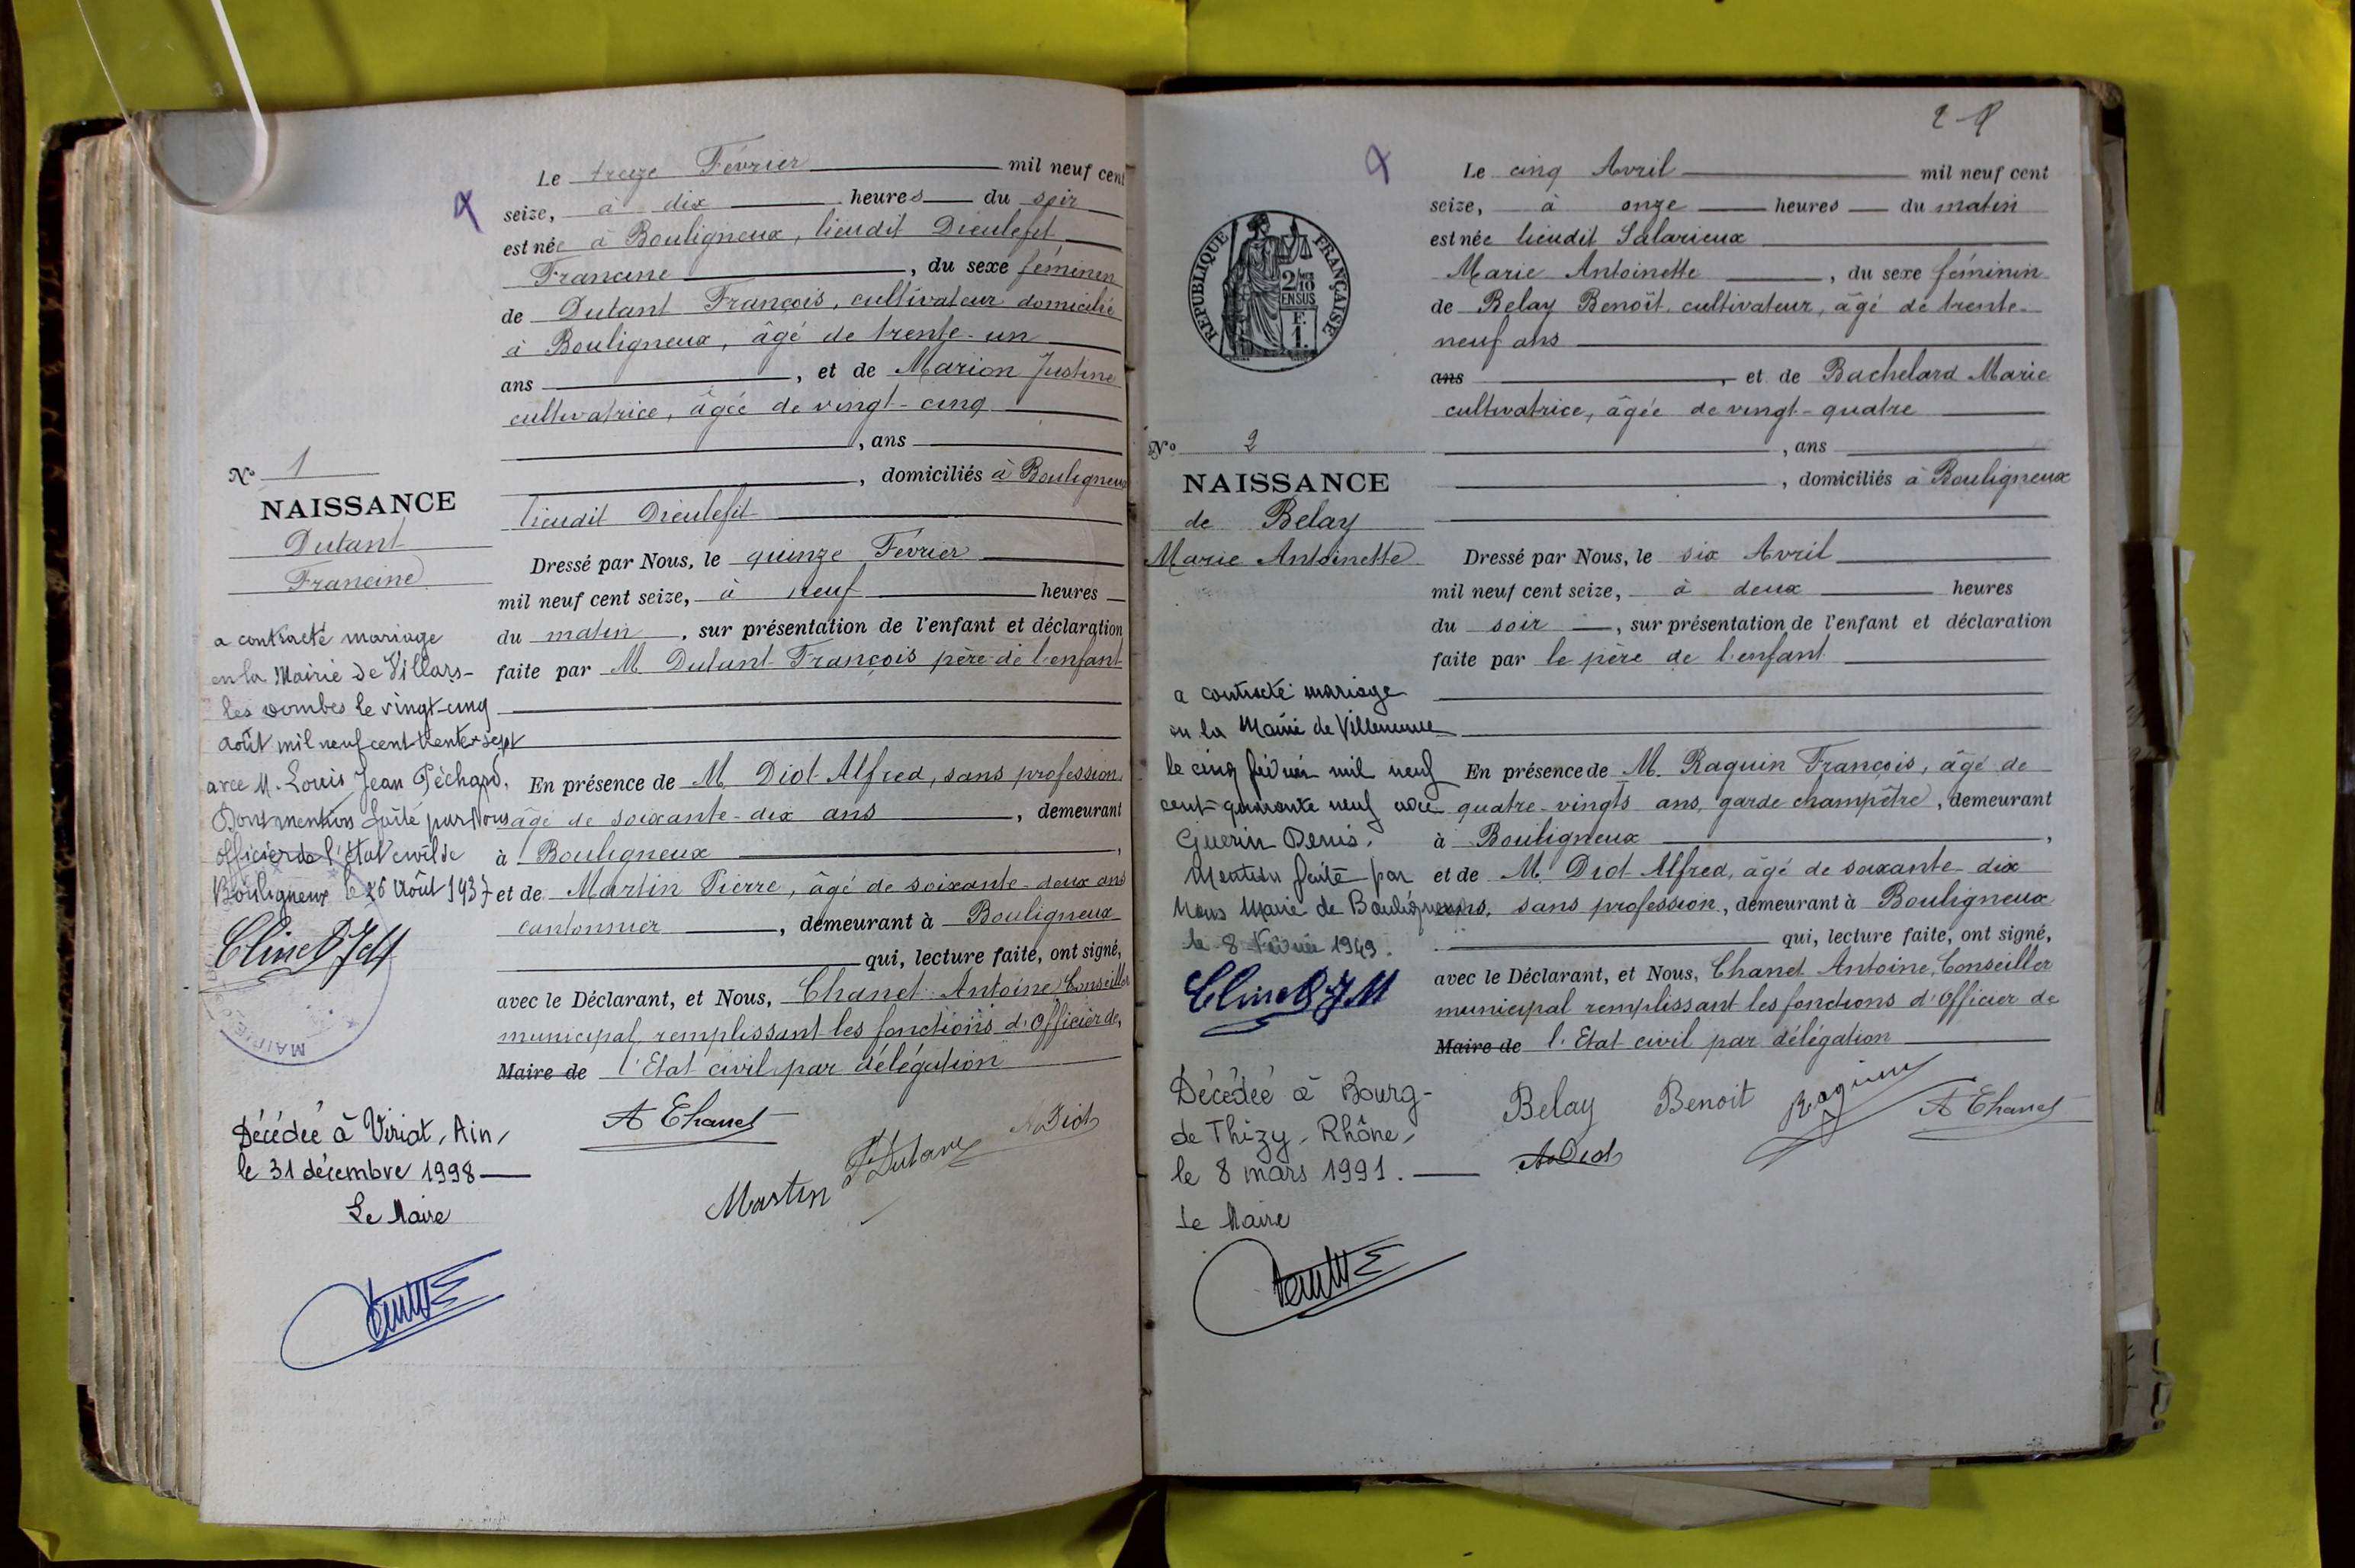 Le treize Février mil neuf cent
seize, à dix heures du soir
est née à Bouligneux, lieudit Dieulefit
Francine, du sexe féminin
de Dutant François, cultivateur domicilié
à Bouligneux, âgé de trente-un
ans, et de Marion Justine
cultivatrice, âgée de vingt-cinq
, ans
, domiciliés à Bouligneux
lieudit Dieulefit
N° 1
NAISSANCE
Dutant
Francine
Dressé par Nous, le quinze Février
mil neuf cent seize, à neuf heures
du matin, sur présentation de l'enfant et déclaration
faite par M Dutant François père de l'enfant
En présence de M Diot Alfred, sans profession
âgé de soixante-dix ans, demeurant
à Bouligneux,
et de Martin Pierre, âgé de soixante-deux ans
cantonnier, demeurant à Bouligneux
qui, lecture faite, ont signé,
avec le Déclarant, et Nous, Chanel Antoine Conseiller
municipal remplissant les fonctions d'Officier de
Maire de l'Etat civil par délégation
A Chanel
Martin
F Dutant
A Diot
a contracté mariage
en la Mairie de Villars-
les Dombes le vingt-cinq
août mil neuf cent trente-sept
avec M. Louis Jean Péchard.
Dont mention faite par Nous
officier de l'état civil de
Bouligneux le 26 Août 1937
MAIRIE
Décédée à Viriat, Ain,
le 31 décembre 1998
Le Maire
2
Le cinq Avril mil neuf cent
seize, à onze heures du matin
est née lieudit Salarieux
Marie Antoinette, du sexe féminin
de Belay Benoît, cultivateur, âgé de trente-
neuf ans
ans, et de Bachelard Marie
cultivatrice, âgée de vingt-quatre
, ans
, domiciliés à Bouligneux
REPUBLIQUE FRANÇAISE
2/10
EN SUS
F.
1.
N° 2
NAISSANCE
de Belay
Marie Antoinette
Dressé par Nous, le six Avril
mil neuf cent seize, à deux heures
du soir, sur présentation de l'enfant et déclaration
faite par le père de l'enfant
En présence de M. Raquin François, âgé de
quatre-vingts ans, garde champêtre, demeurant
à Bouligneux,
et de M. Diot Alfred, âgé de soixante-dix
ans, sans profession, demeurant à Bouligneux
qui, lecture faite, ont signé,
avec le Déclarant, et Nous, Chanel Antoine, Conseiller
municipal remplissant les fonctions d'Officier de
Maire de l'Etat civil par délégation
Belay Benoit Raquin A Chanel
A Diot
a contracté mariage
en la Mairie de Villeneuve
le cinq février mil neuf
cent quarante neuf avec
Guerin Denis.
Mention faite par
Nous Maire de Bouligneux
le 8 Février 1949.
Décédée à Bourg-
de Thizy, Rhône,
le 8 mars 1991.
Le Maire